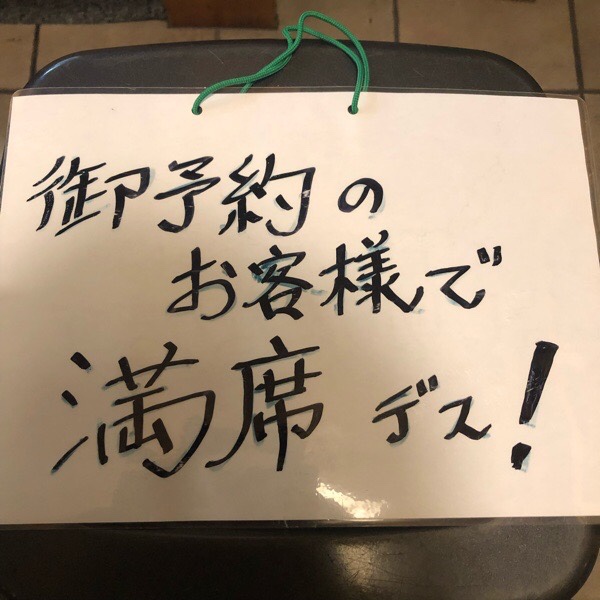 御予約の
お客様で
満席デス!